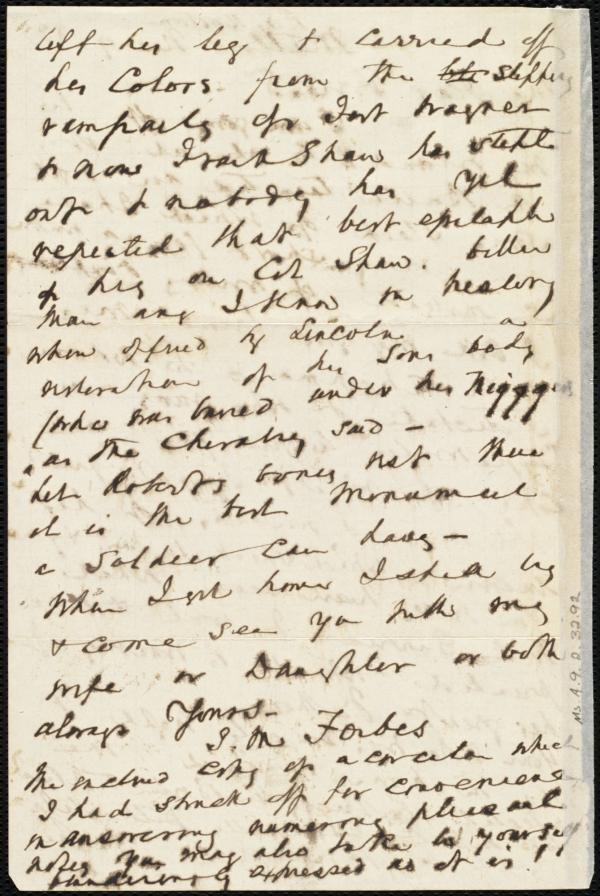 left his leg & carried off
his Colors from the slippery
ramparts of Fort Wagner
& now Frank Shaw has stept
out & nobody has yet
repeated that best epitaph
& his on Col Shaw. better
than any I know in history
when offered by Lincoln a
restoration of his Sons body
(who was buried under his
as the Chivalry said —
let Roberts bones rest there
it is the best Monument
a Soldier can have —
When I get home I shall try
& come see you with my
wife or Daughter or both
always Yours —
J. M. Forbes
The enclosed copy of a circular which
I had struck off for convenience
in answering numerous pleasant
notes you may also take to yourself
blunderingly expressed as it is!!
Ms. A.9.2 p. 32.92